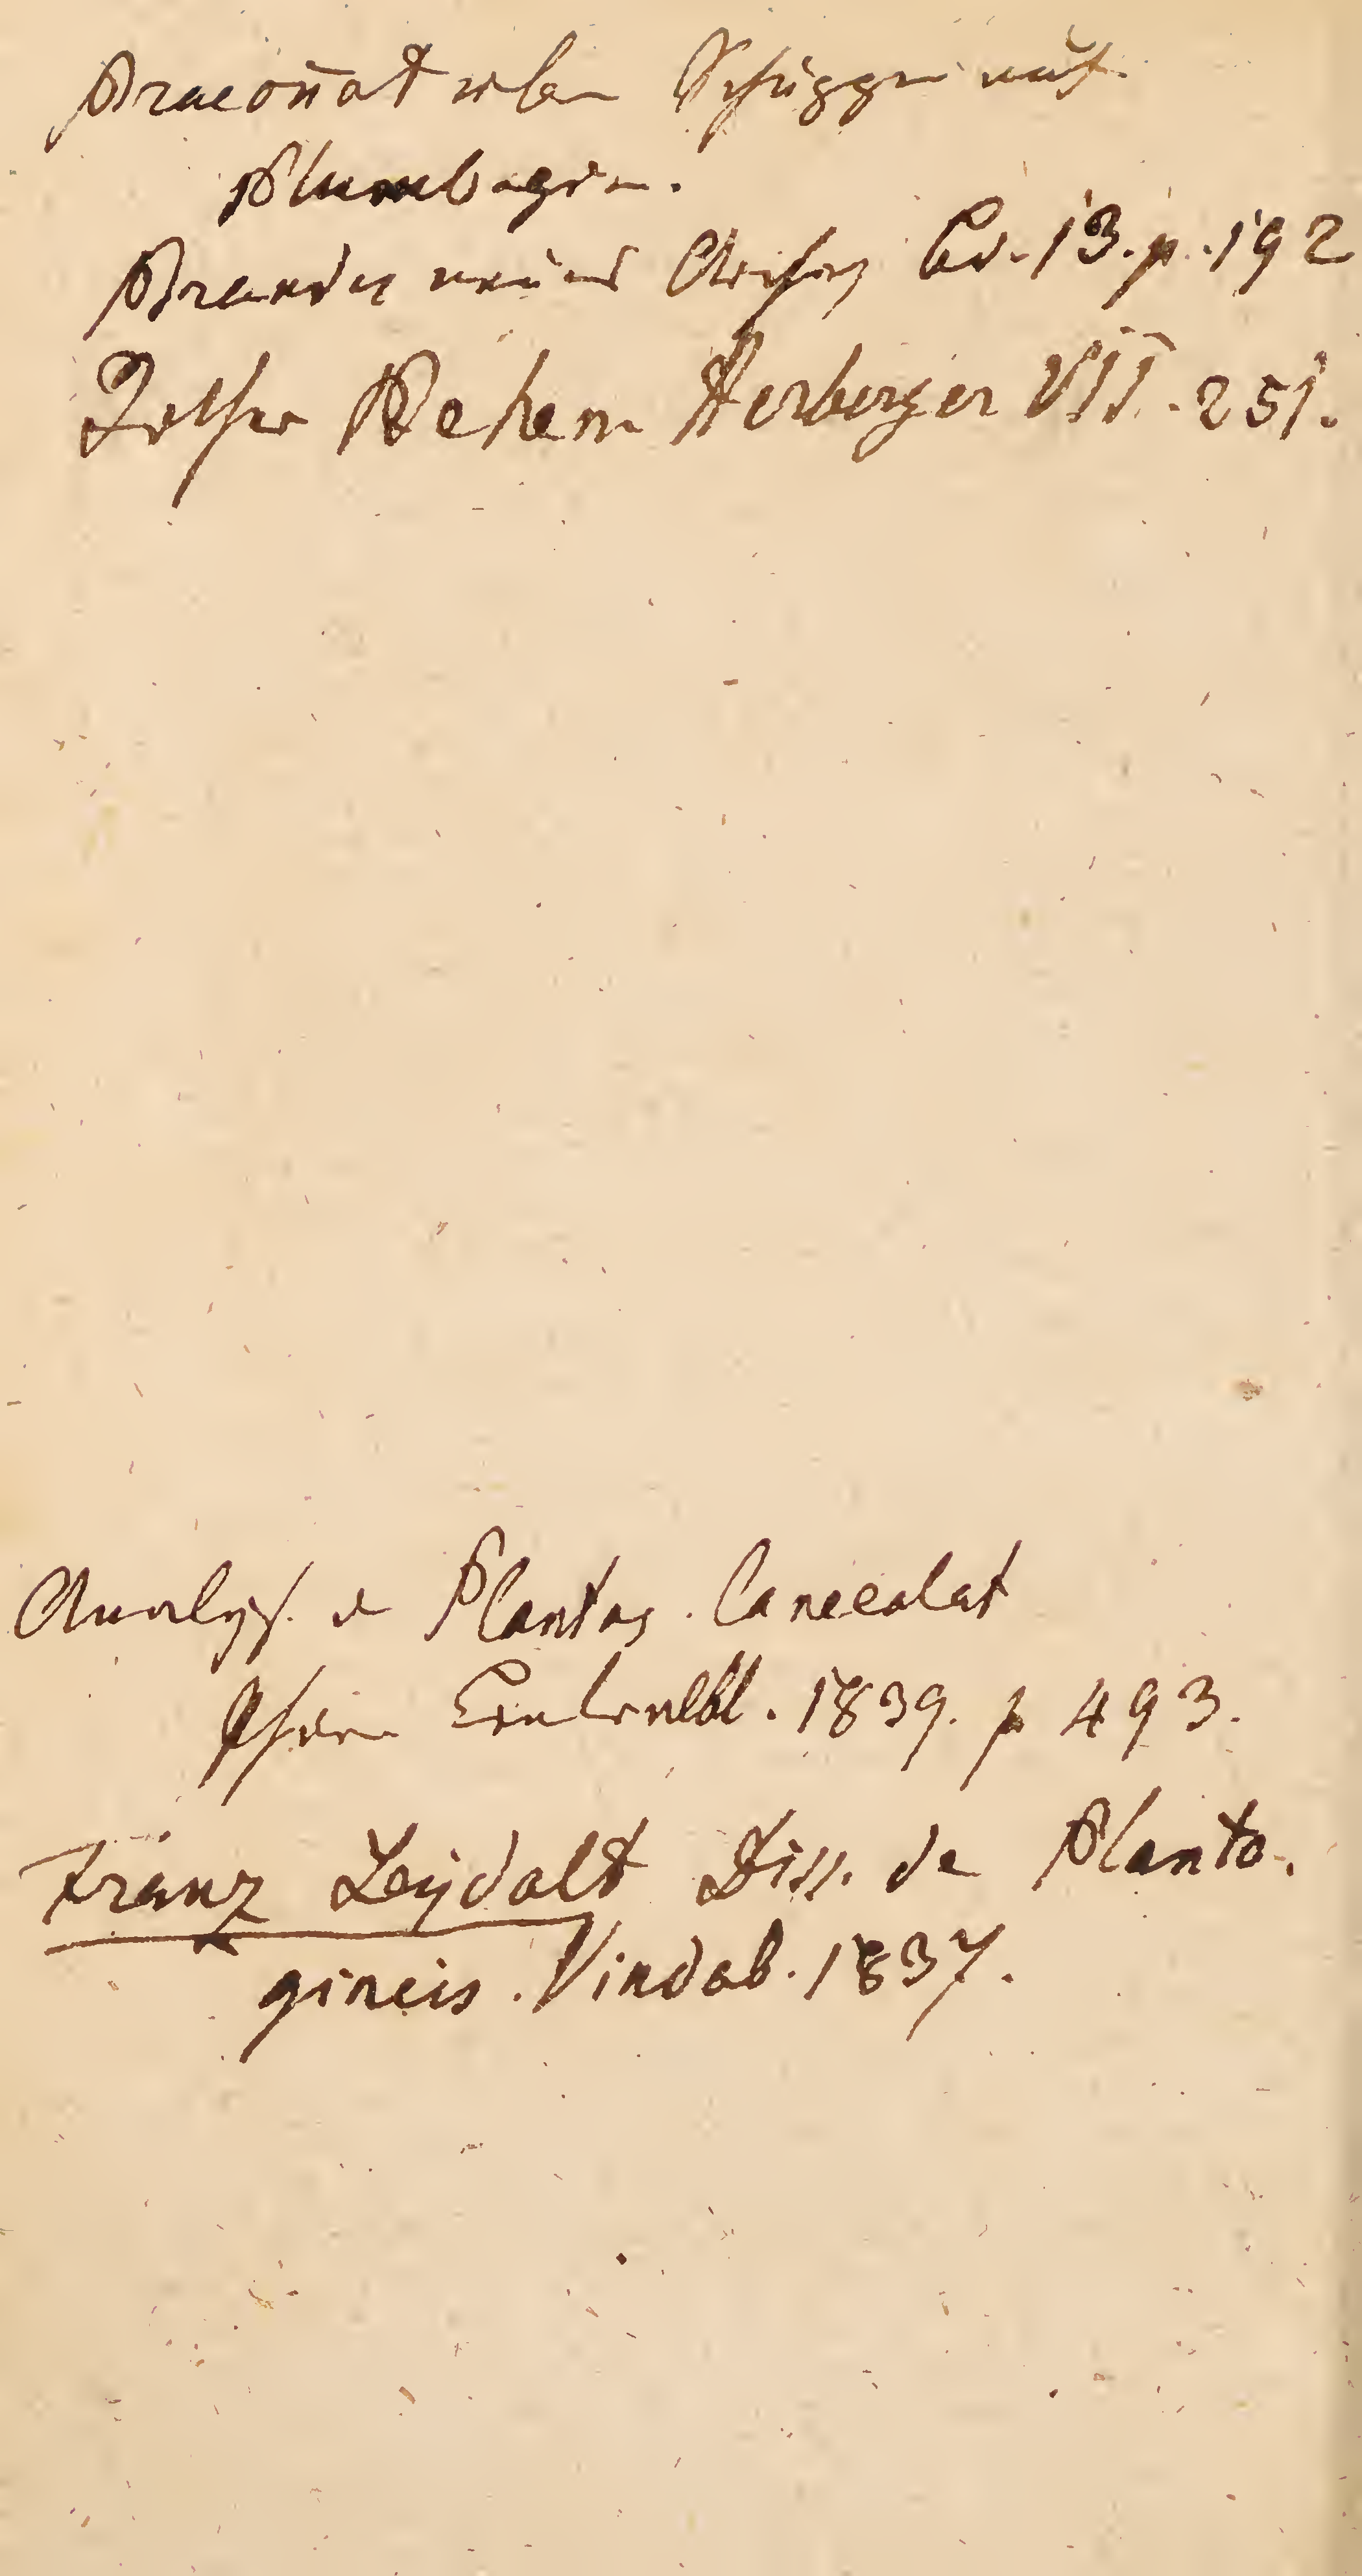 Braconnot über Schuppen auf
Plumbagin.
Brandes neues Archiv Bd. 13. p. 192
Rother Behen Herberger VII. 251.
Analys. d Plantag. lanceolat
Pharm Centralbl. 1839. p 493.
Franz Leydolt Diss. de Planta-
gineis. Vindob. 1837.